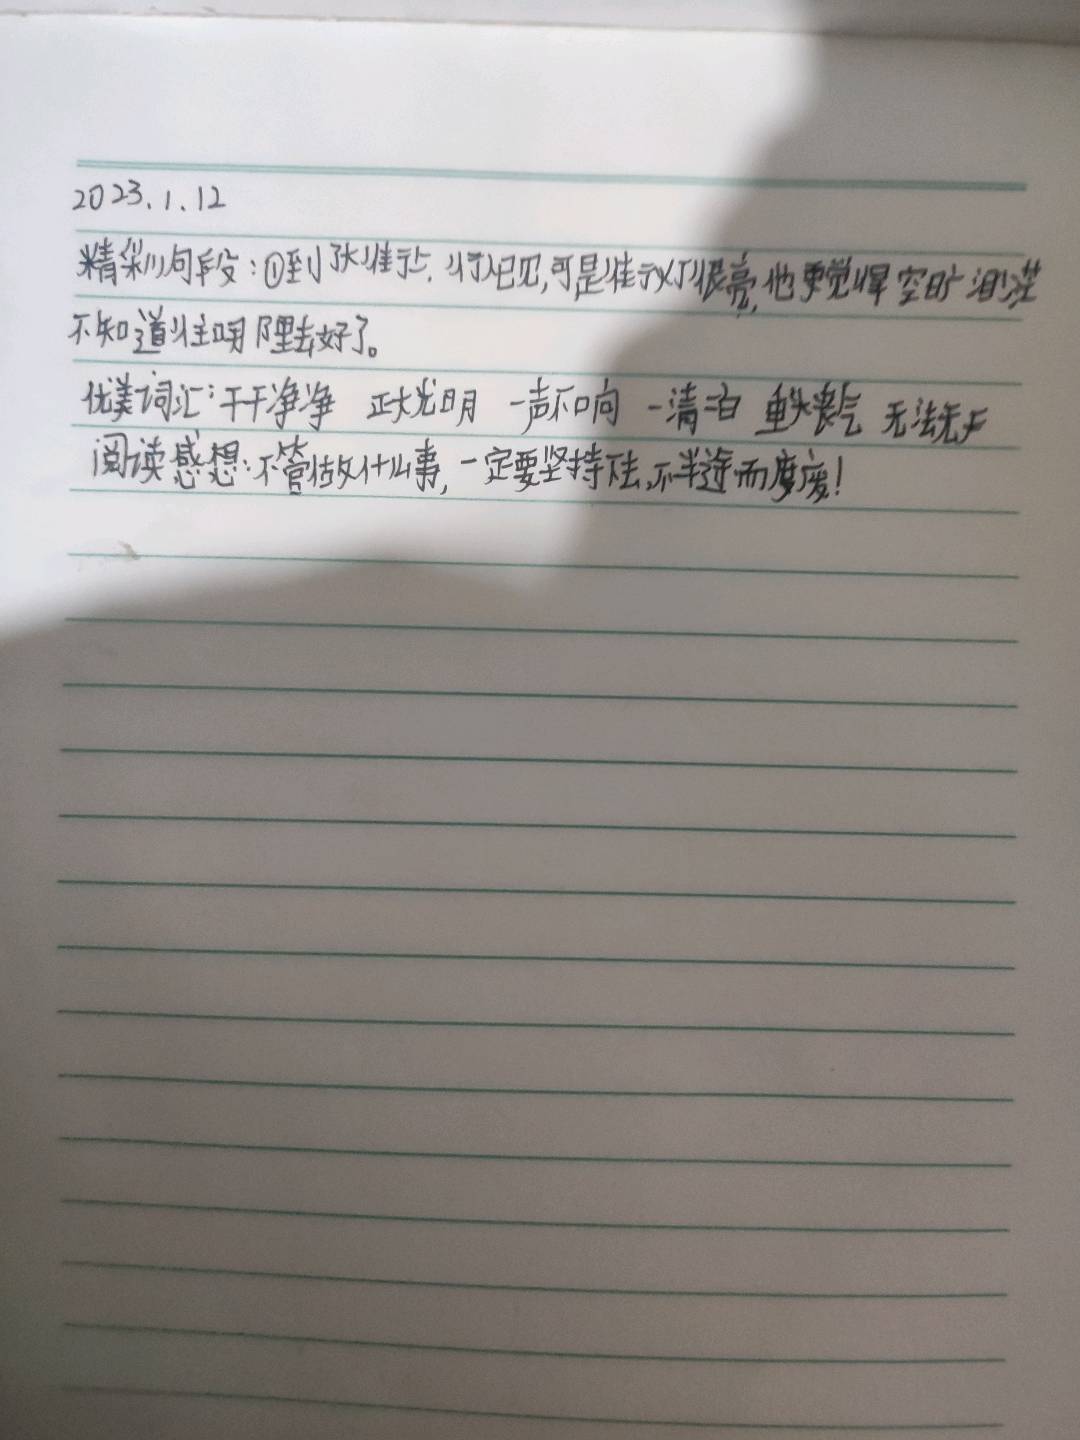 2023.1.12
精彩句段:①到了张准于上.可是很亮,他更觉得空旷
不知道往哪里去好了。
优美词汇:干干净净 正大光明 一声不响 一清二白 垂头丧气 无法无天
阅读感想:不管做什么事,一定要坚持下去,不半途而度废!